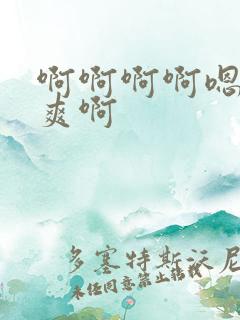 啊啊啊啊嗯
爽啊
多塞特斯沃尼
未经同意禁止转载